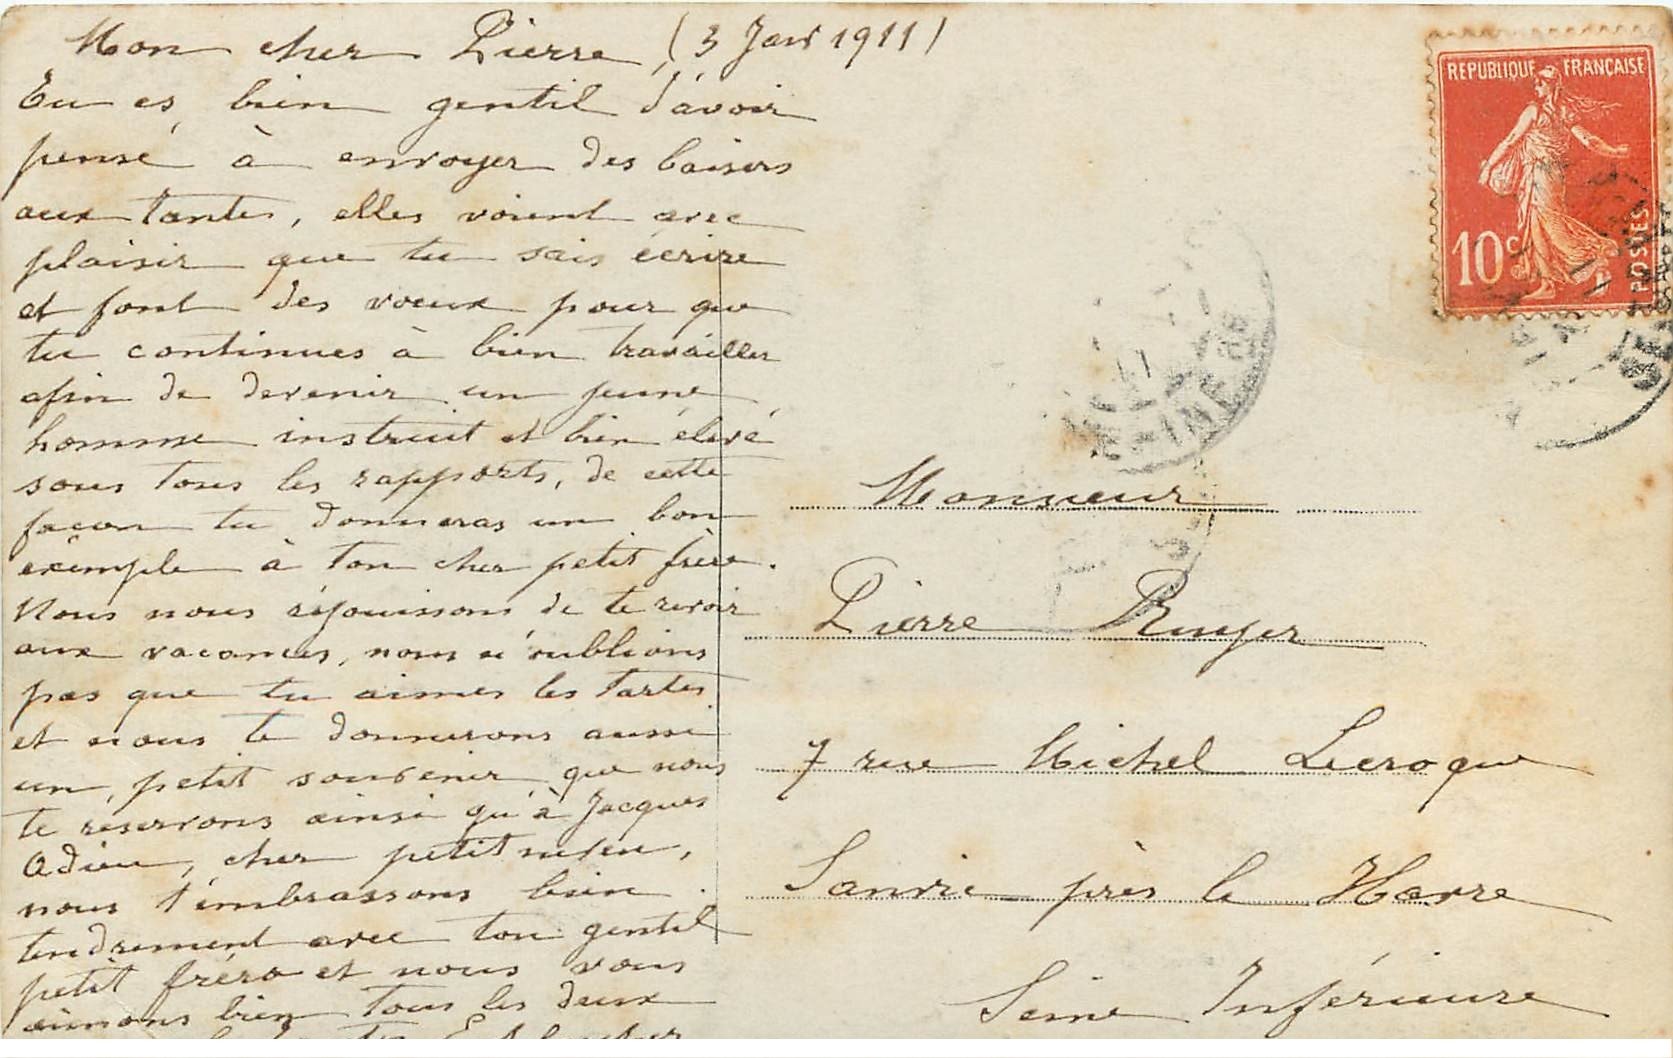 Mon cher Pierre, (3 Janv 1911)
Tu es bien gentil d'avoir
pensé à envoyer des baisers
aux tantes, elles voient avec
plaisir que tu sais écrire
et font des voeux pour que
tu continues à bien travailler
afin de devenir un jeune
homme instruit et bien élevé
sous tous les rapports, de cette
façon tu donneras un bon
exemple à ton cher petit frère.
Nous nous réjouissons de te revoir
aux vacances, nous n'oublions
pas que tu aimes les tartes
et nous te donnerons aussi
un petit souvenir que nous
te réservons ainsi qu'à Jacques
Adieu, cher petit neveu,
nous t'embrassons bien
tendrement avec ton gentil
petit frère et nous vous
aimons bien tous les deux
REPUBLIQUE FRANÇAISE
10c POSTES
Monsieur
Pierre
7 rue Michel
Sanvic près le Havre
Seine Inférieure